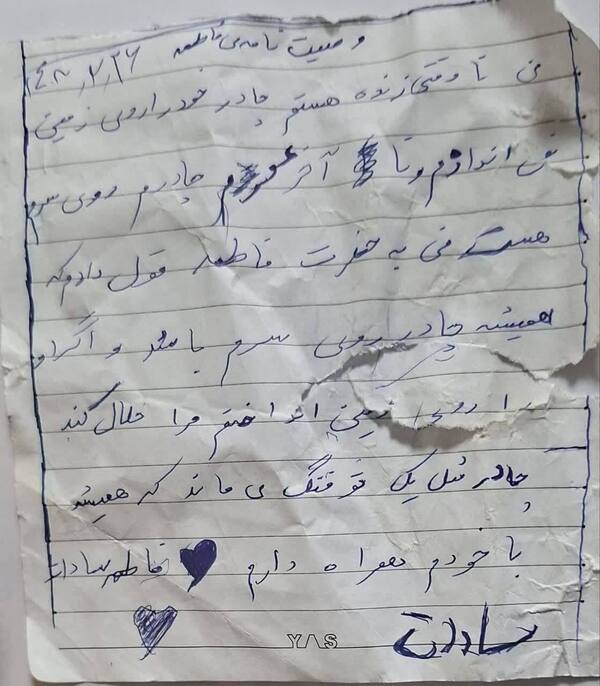 وصیت نامه ی فاطمه ۱۴۰۲,۲,۲۶
من تا وقتی زنده هستم چادر خود را روی زمین
نمی اندازم و تا آخر عمرم چادرم روی سرم
هست من به حضرت فاطمه قول دادم که
همیشه چادر روی سرم باشد و اگر او
را روی زمین انداختم مرا حلال کند
چادر مثل یک تفنگ می ماند که همیشه
با خودم همراه دارم فاطمه سادات
سادات
YAS